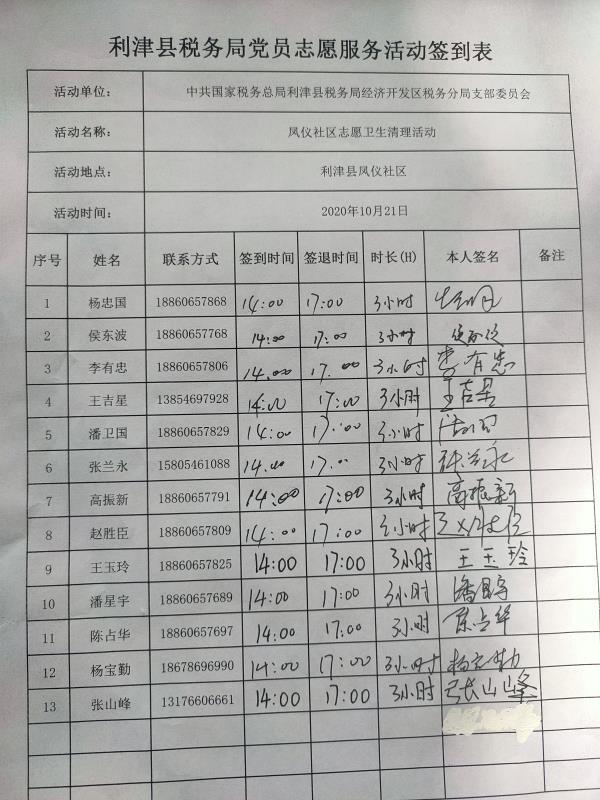 利津县税务局党员志愿服务活动签到表
活动单位： 中共国家税务总局利津县税务局经济开发区税务分局支部委员会
活动名称： 凤仪社区志愿卫生清理活动
活动地点： 利津县凤仪社区
活动时间： 2020年10月21日
序号 姓名 联系方式 签到时间 签退时间 时长(H) 本人签名 备注
1 杨忠国 18860657868 14:00 17:00 3小时
2 侯东波 18860657768 14:00 17:00 3小时 侯东波
3 李有忠 18860657806 14:00 17:00 3小时 李有忠
4 王吉星 13854697928 14:00 17:00 3小时 王吉星
5 潘卫国 18860657829 14:00 17:00 3小时
6 张兰永 15805461088 14:00 17:00 3小时 张兰永
7 高振新 18860657791 14:00 17:00 3小时 高振新
8 赵胜臣 18860657809 14:00 17:00 3小时 赵胜臣
9 王玉玲 18860657825 14:00 17:00 3小时 王玉玲
10 潘星宇 18860657689 14:00 17:00 3小时 潘星宇
11 陈占华 18860657697 14:00 17:00 3小时 陈占华
12 杨宝勤 18678696990 14:00 17:00 3小时 杨宝勤
13 张山峰 13176606661 14:00 17:00 3小时 张山峰